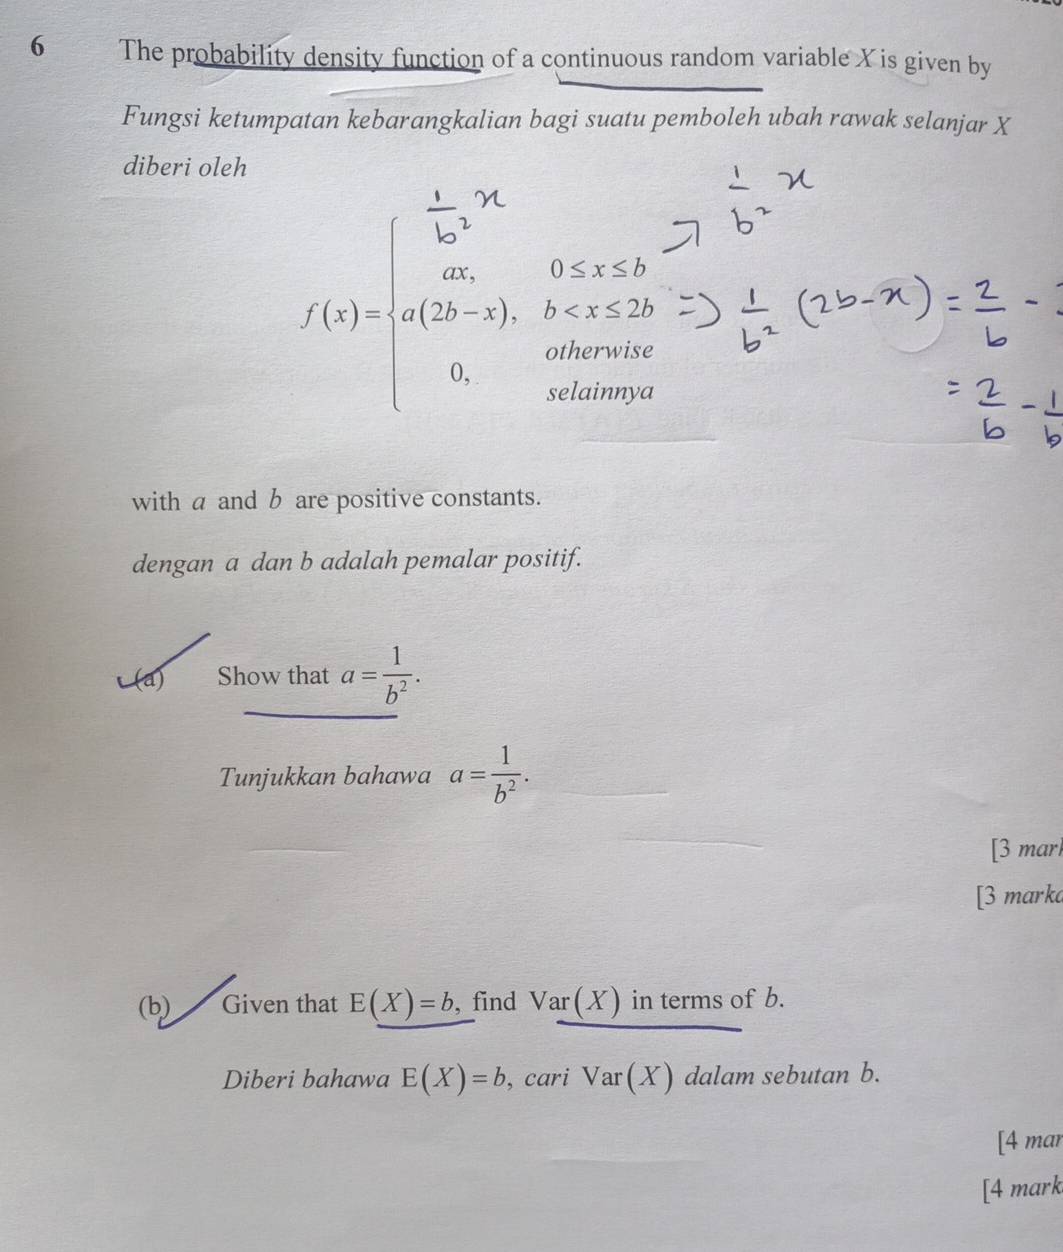 6 The probability density function of a continuous random variable X is given by
Fungsi ketumpatan kebarangkalian bagi suatu pemboleh ubah rawak selanjar X
diberi oleh
1/b² x
1/b² x
ax, 0 ≤ x ≤ b
f(x) = { a(2b − x), b < x ≤ 2b => 1/b² (2b − x) = 2/b −
otherwise
0,
selainnya
= 2/b − 1/b
with a and b are positive constants.
dengan a dan b adalah pemalar positif.
(a) Show that a = 1/b².
Tunjukkan bahawa a = 1/b².
[3 mar
[3 mark
(b) Given that E(X) = b, find Var(X) in terms of b.
Diberi bahawa E(X) = b, cari Var(X) dalam sebutan b.
[4 mar
[4 mark